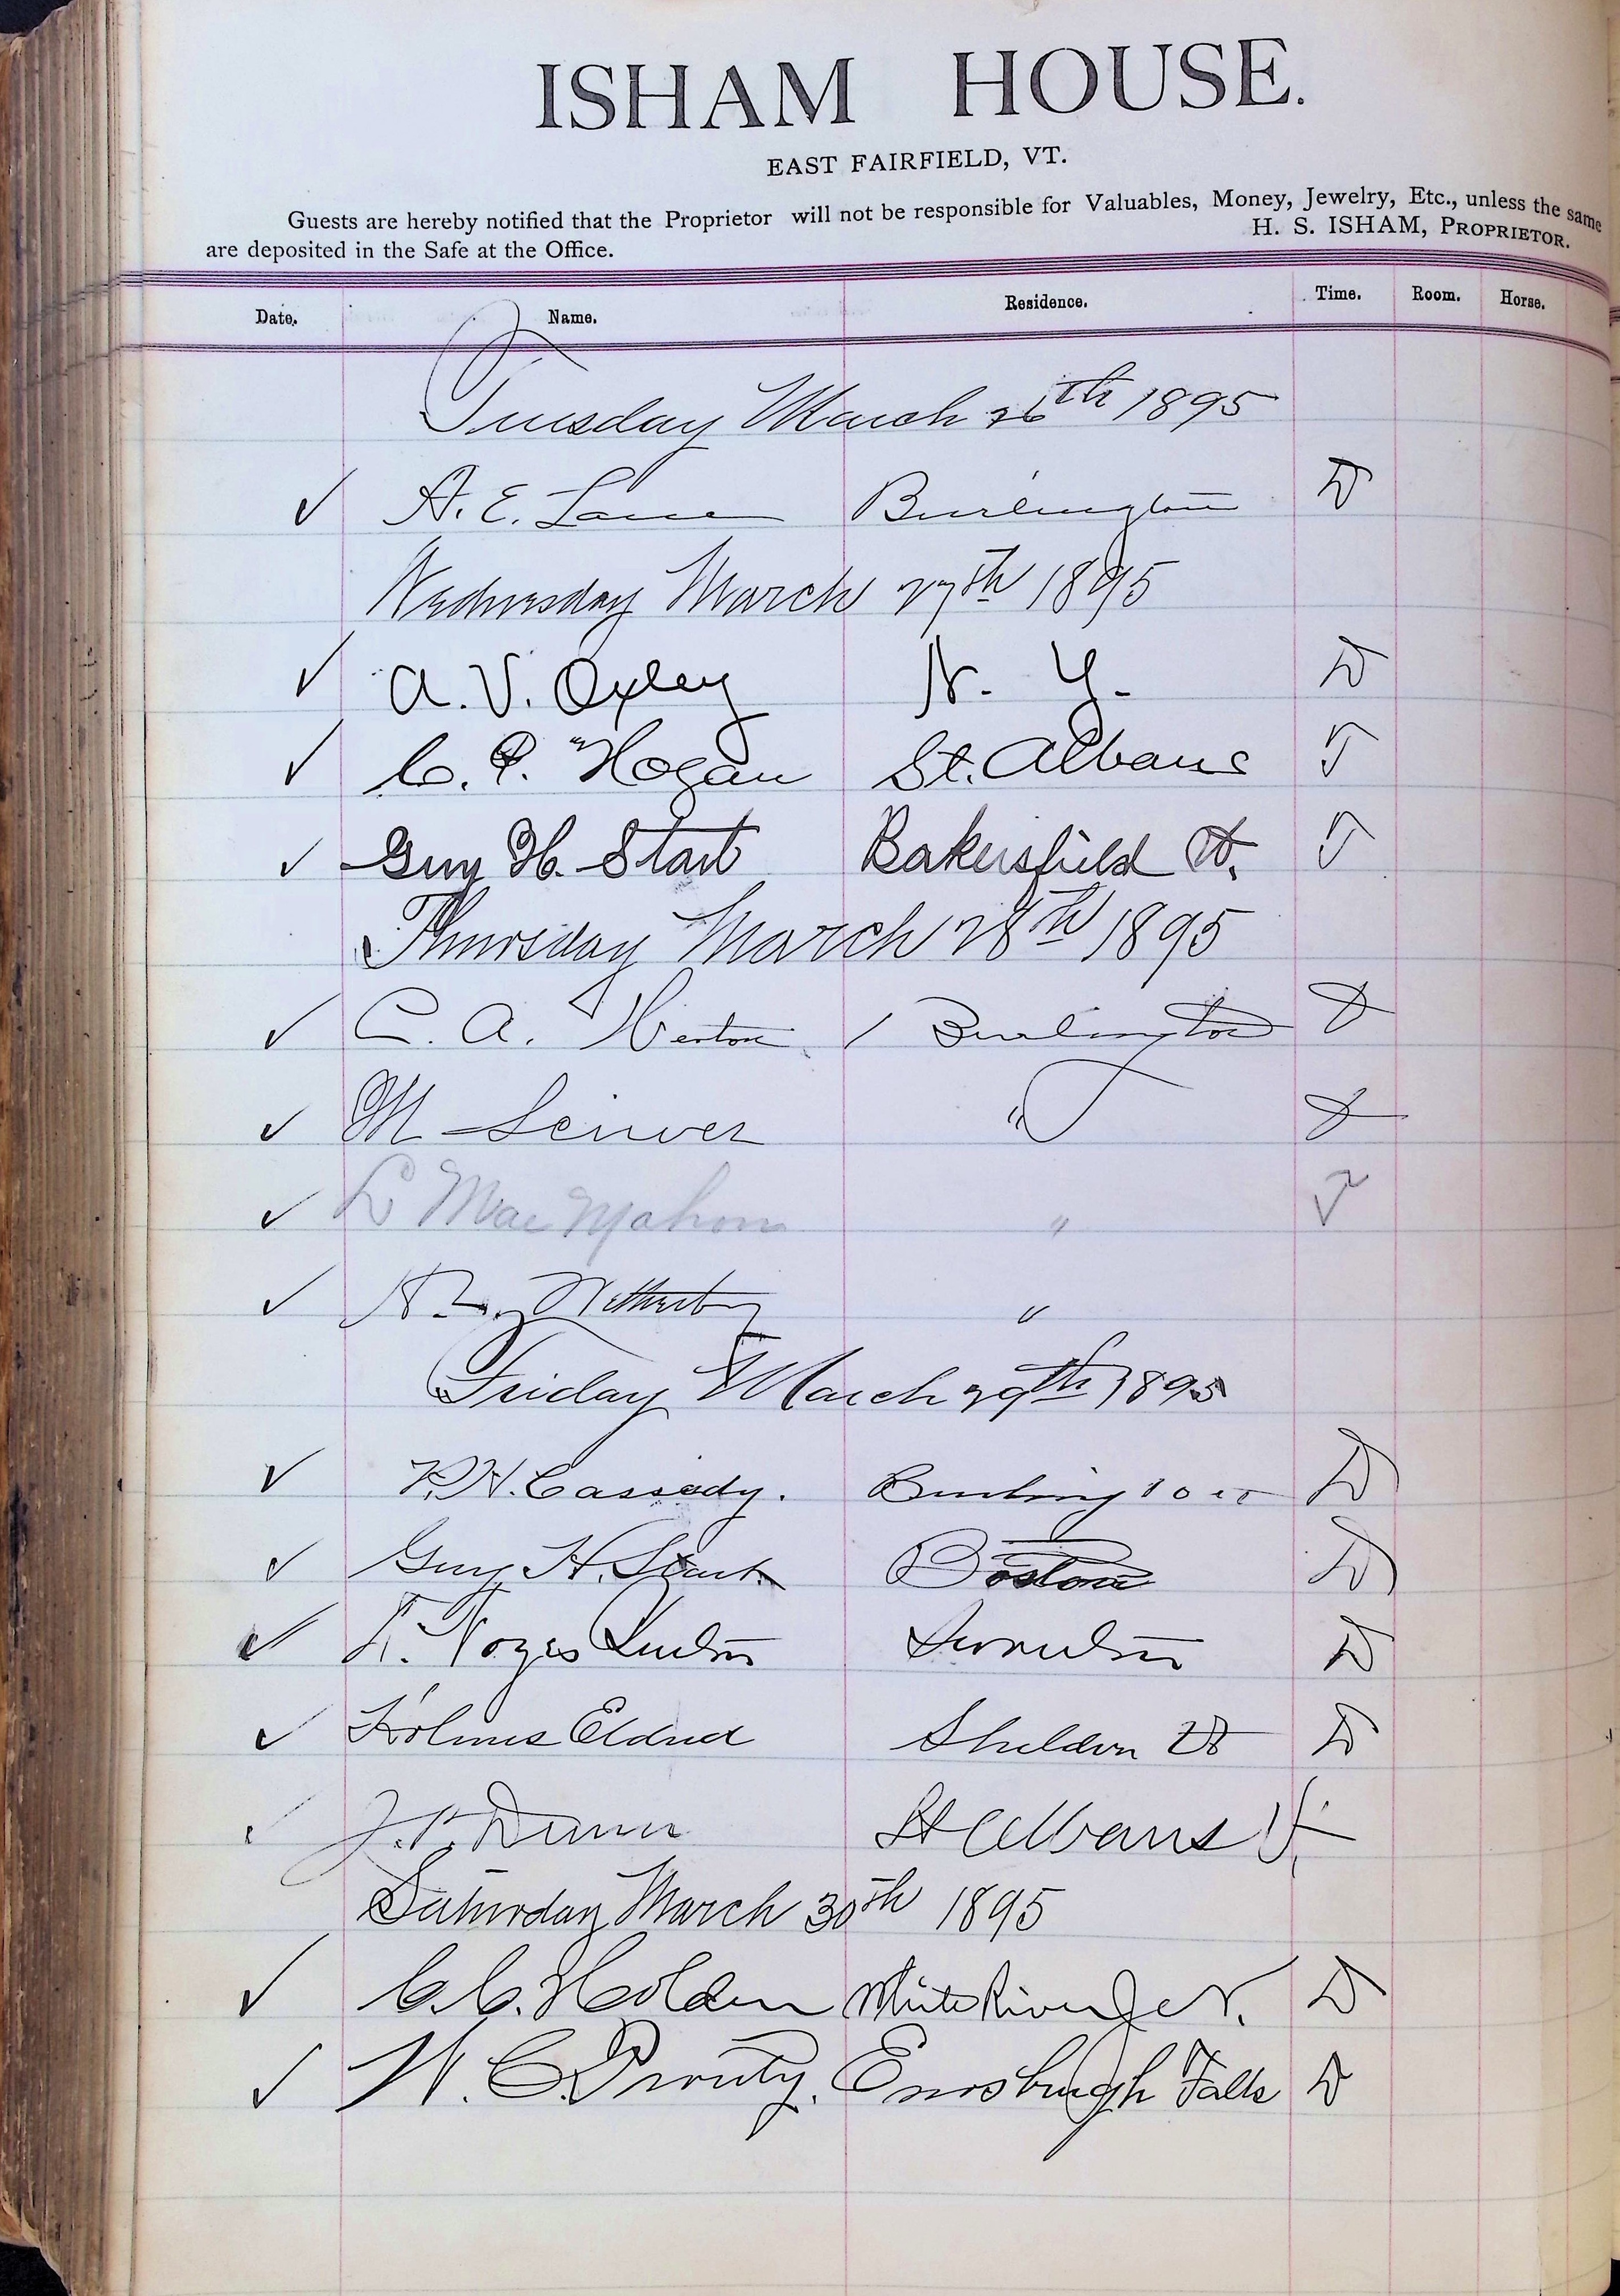 ISHAM HOUSE.
EAST FAIRFIELD, VT.
Guests are hereby notified that the Proprietor will not be responsible for Valuables, Money, Jewelry, Etc., unless the same
are deposited in the Safe at the Office. H. S. ISHAM, PROPRIETOR.
Date. Name. Residence. Time. Room. Horse.
Tuesday March 26th 1895
✓ A. E. Lane Burlington D
Wednesday March 27th 1895
✓ A. V. Oxley N. Y. D
✓ C. P. Hogan St. Albans
✓ Guy H. Start Bakersfield Vt.
Thursday March 28th 1895
✓ C. A. Burlington D
✓ M " D
✓ L MacMahon "
✓ "
Friday March 29th 1895
✓ P. H. Cassady. Burlington D
✓ Guy H. Start Boston D
✓ Noyes Swanton D
✓ Holmes Eldred Sheldon Vt D
✓ J. P. Dunn St Albans Vt
Saturday March 30th 1895
✓ C. C. Holden White River Jc V. D
✓ W. C. Prouty. Enosburgh Falls D